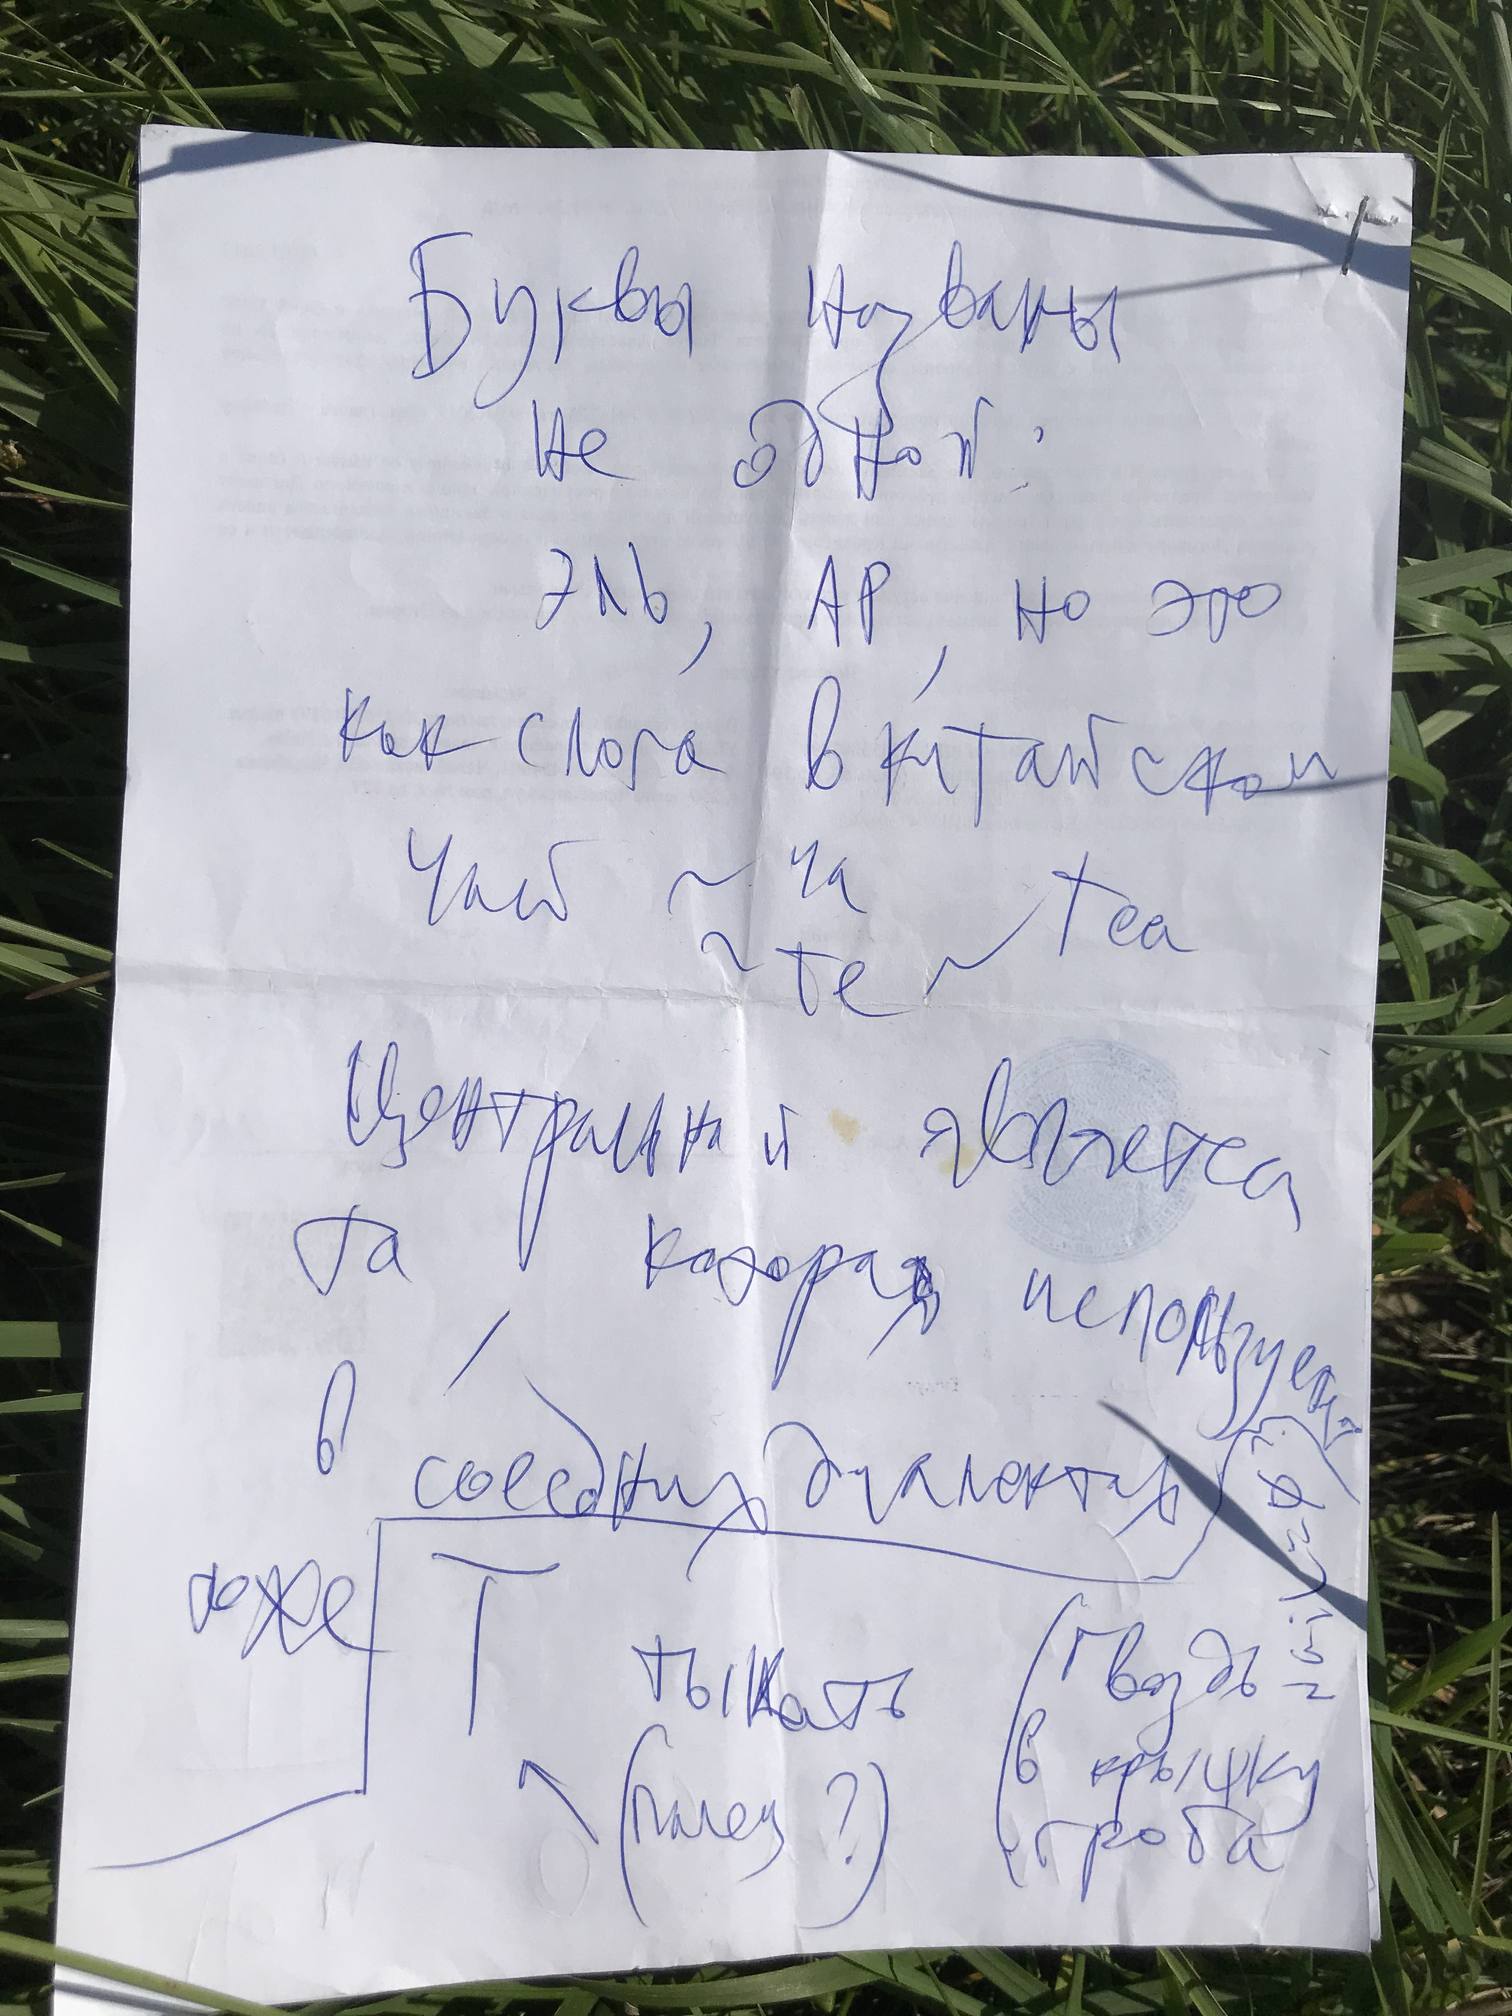 Буквы названы
не одной:
ЭЛЬ, АР, но это
как слога в китайском
Чай ~ ча
~ те ~ tea
Центральной является
та которая используется
в соседних диалектах
тоже
Т тыкать (гвоздь
(палец?) в крышку
гроба